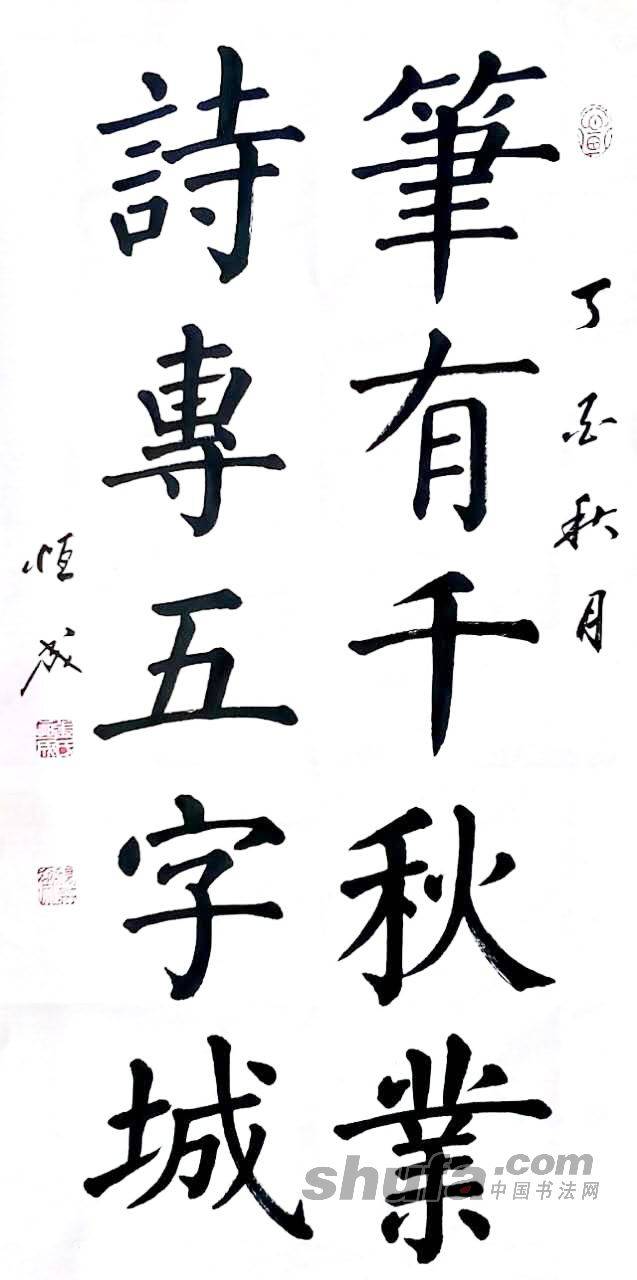 丁酉秋月
筆有千秋業
詩專五字城
恒成
shufa.com
中国书法网